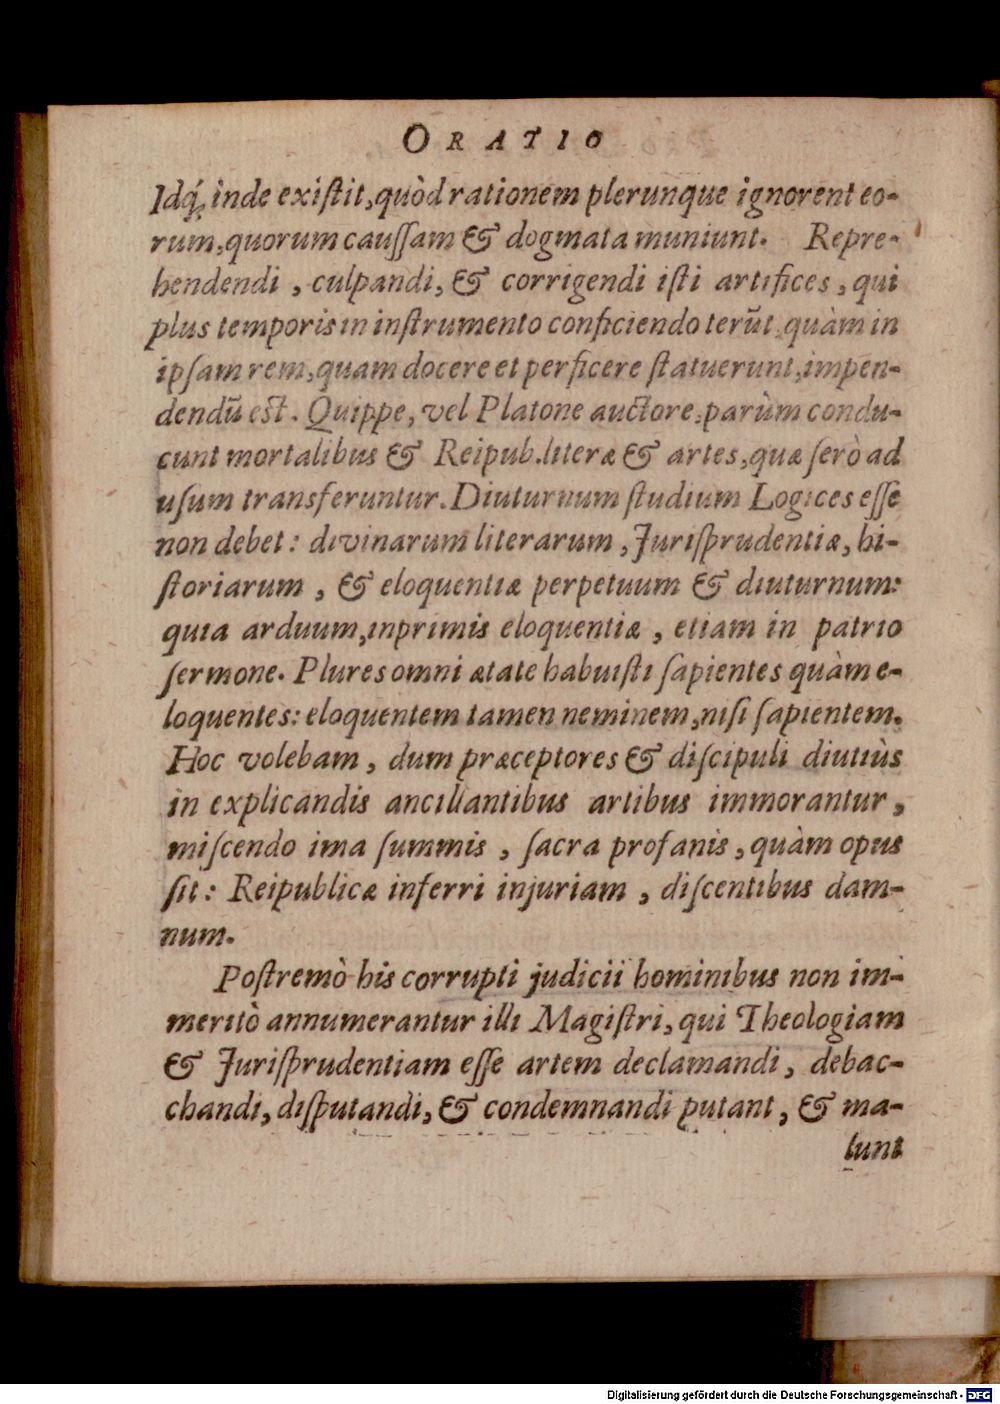 ORATIO
Idq́; inde exiſtit, quòd rationem plerunque ignorent eo-
rum, quorum cauſſam & dogmata muniunt. Repre-
hendendi, culpandi, & corrigendi iſti artifices, qui
plus temporis in inſtrumento conficiendo terūt quàm in
ipſam rem, quam docere et perficere ſtatuerunt, impen-
dendū est. Quippe, vel Platone auctore, parùm condu-
cunt mortalibus & Reipub. literæ & artes, quæ ſerò ad
uſum transferuntur. Diuturnum ſtudium Logices eſſe
non debet: divinarum literarum, Juriſprudentiæ, hi-
ſtoriarum, & eloquentiæ perpetuum & diuturnum:
quia arduum, inprimis eloquentiæ, etiam in patrio
ſermone. Plures omni ætate habuiſti ſapientes quàm e-
loquentes: eloquentem tamen neminem, niſi ſapientem.
Hoc volebam, dum præceptores & diſcipuli diutiùs
in explicandis ancillantibus artibus immorantur,
miſcendo ima ſummis, ſacra profanis, quàm opus
ſit: Reipublicæ inferri injuriam, diſcentibus dam-
num.
Poſtremò his corrupti judicii hominibus non im-
meritò annumerantur illi Magiſtri, qui Theologiam
& Juriſprudentiam eſſe artem declamandi, debac-
chandi, diſputandi, & condemnandi putant, & ma-
lunt
Digitalisierung gefördert durch die Deutsche Forschungsgemeinschaft - DFG